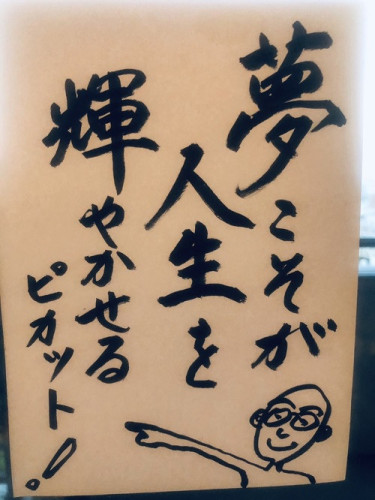 夢こそが
人生を
輝やかせる
ピカット!